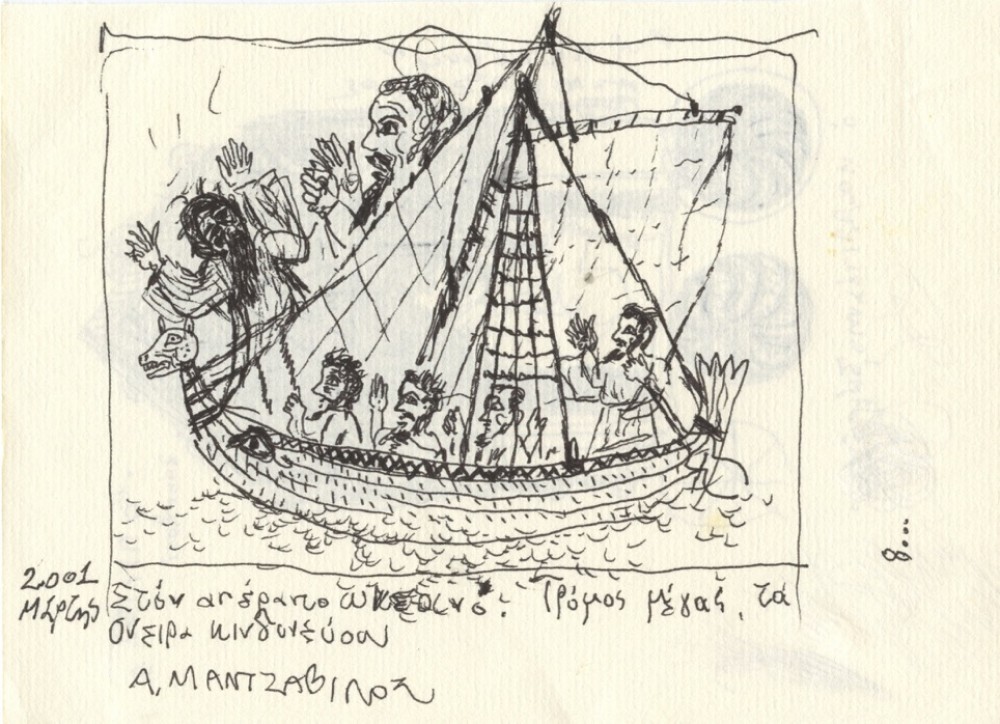 2001
Μάρτης
Στόν απέραντο ωκεανό: Τρόμος μέγας, τά
όνειρα κινδυνεύουν
Α, ΜΑΝΤΖΑΒΙΝΟΣ
8...